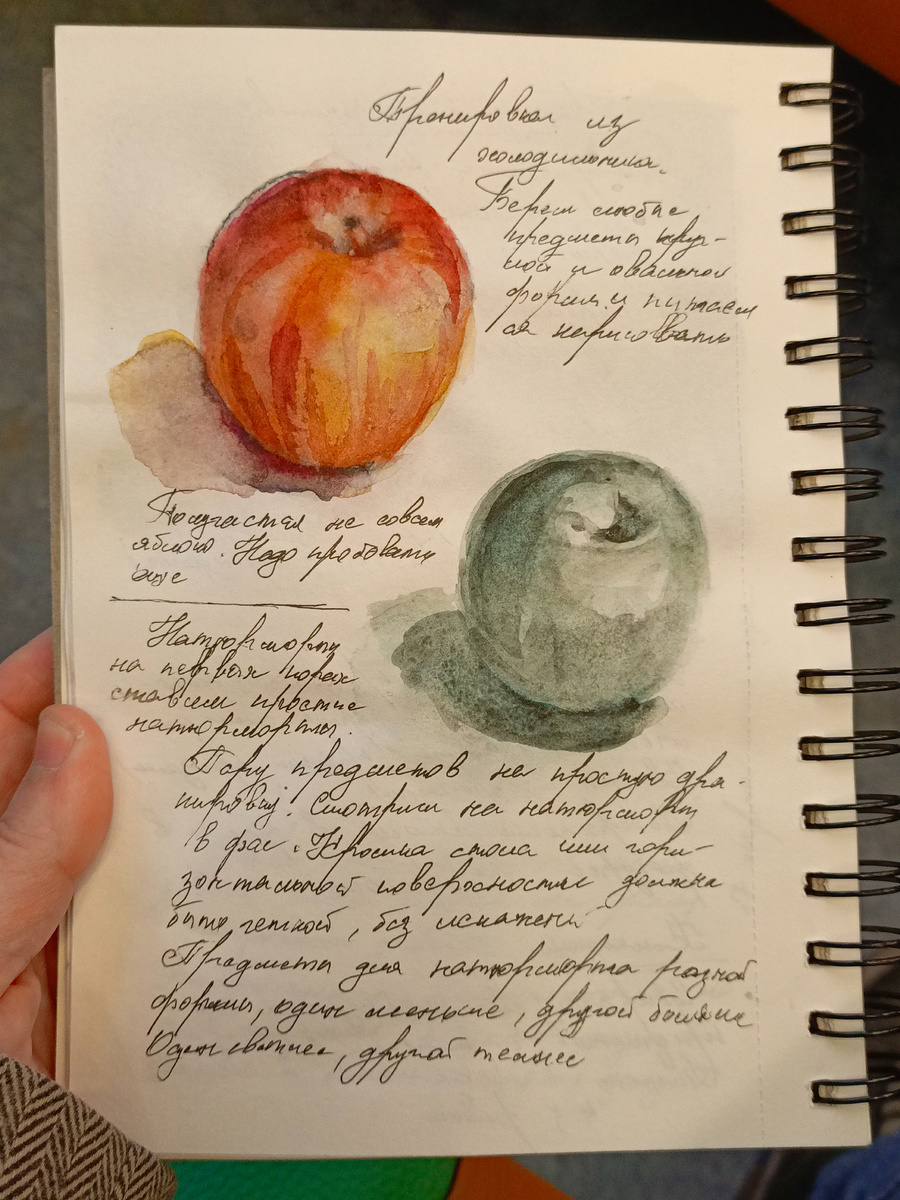 Тренировка из
холодильника.
Берем любые
предметы круг-
лой и овальной
формы и пытаем
ся нарисовать
Получастся не совсем
яблоко. Надо пробовать
еще
Натюрморты
на первых порах
ставим простые
натюрморты.
Пару предметов на простую дра-
пировку. Смотрим на натюрморт
в фас. Кромка стола или гори-
зонтальной поверхности должна
быть четкой, без искажений
Предметы для натюрморта разной
формы, один меньше, другой больше
Один светлее, другой темнее